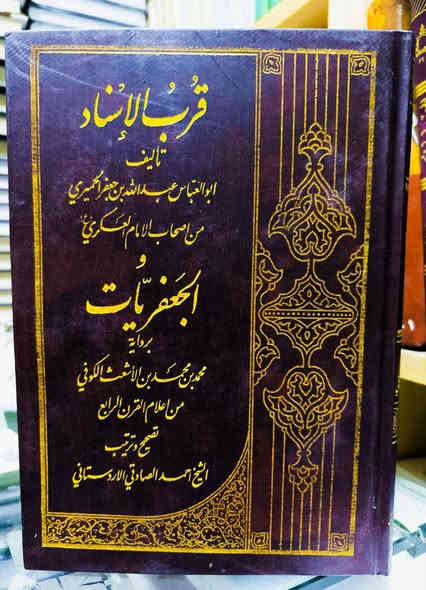 قرب الإسناد
تأليف
ابو العباس عبد الله بن جعفر الحميري
من اصحاب الامام العسكري
و
الجعفريات
برواية
محمد بن محمد بن الأشعث الكوفي
من اعلام القرن الرابع
تصحيح وترتيب
الشيخ احمد الصادقي الاردستاني